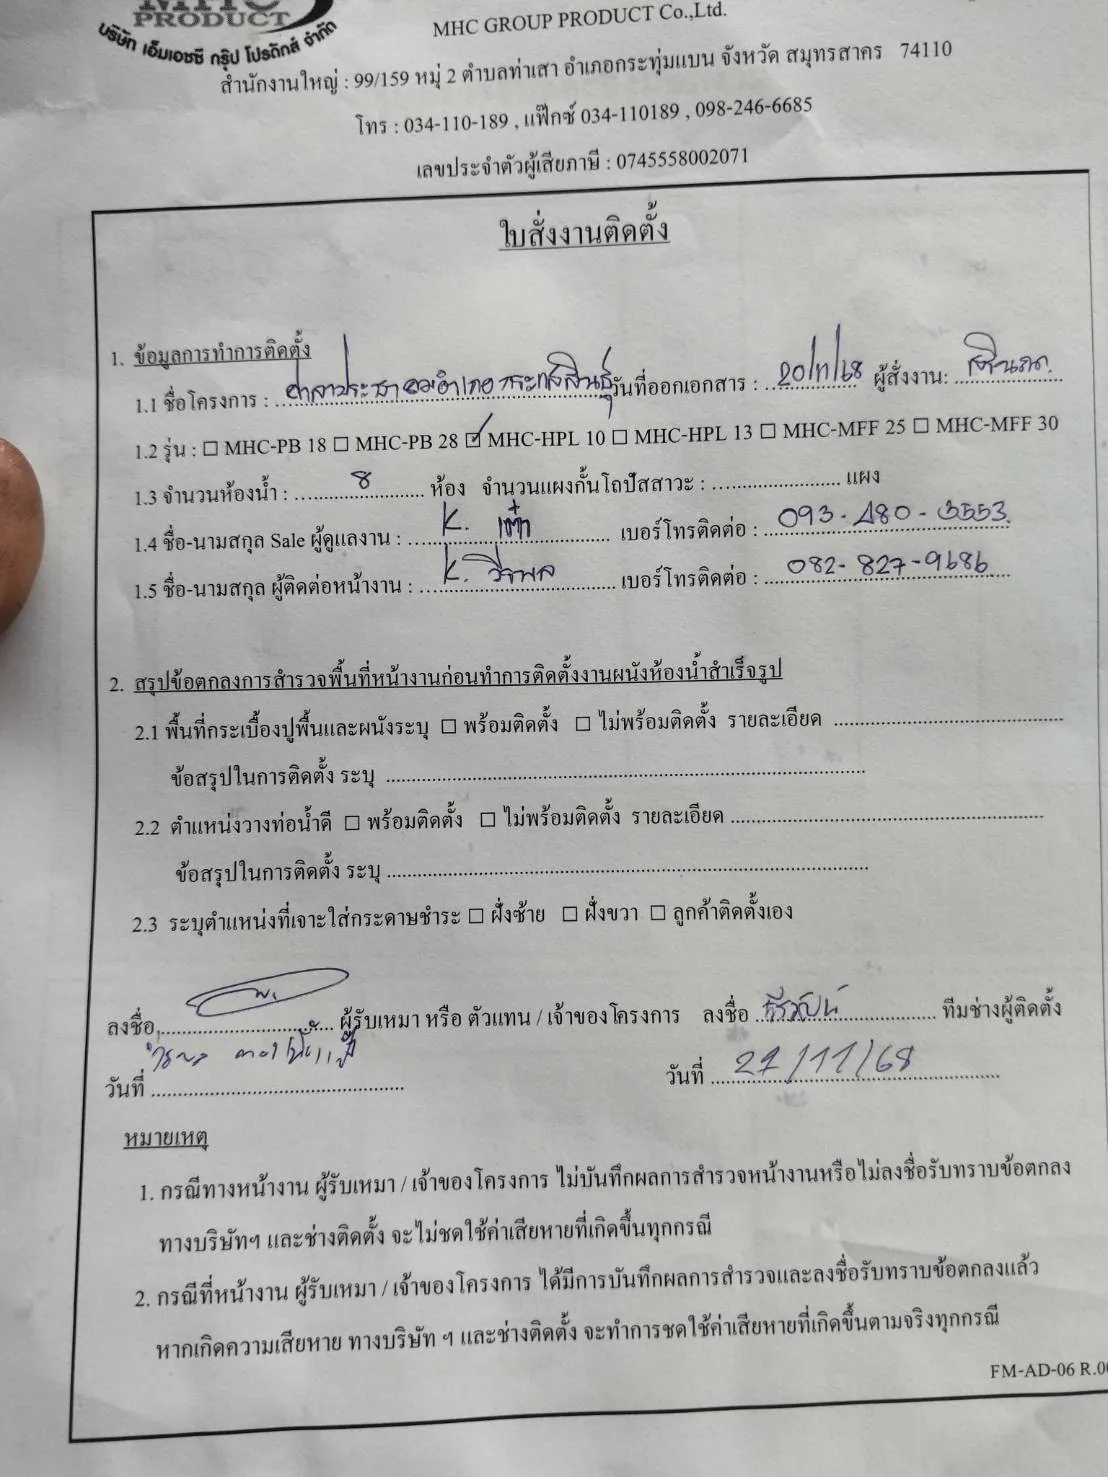 MHC
PRODUCT
บริษัท เอ็มเอชซี กรุ๊ป โปรดักส์ จำกัด
MHC GROUP PRODUCT Co.,Ltd.
สำนักงานใหญ่ : 99/159 หมู่ 2 ตำบลท่าเสา อำเภอกระทุ่มแบน จังหวัด สมุทรสาคร 74110
โทร : 034-110-189 , แฟ๊กซ์ 034-110189 , 098-246-6685
เลขประจำตัวผู้เสียภาษี : 0745558002071
ใบสั่งงานติดตั้ง
1. ข้อมูลการทำการติดตั้ง
1.1 ชื่อโครงการ : ศาลาประชาคมอำเภอ วันที่ออกเอกสาร : 20/11/68 ผู้สั่งงาน:
1.2 รุ่น : ☐ MHC-PB 18 ☐ MHC-PB 28 ☑ MHC-HPL 10 ☐ MHC-HPL 13 ☐ MHC-MFF 25 ☐ MHC-MFF 30
1.3 จำนวนห้องน้ำ : 8 ห้อง จำนวนแผงกั้นโถปัสสาวะ : แผง
1.4 ชื่อ-นามสกุล Sale ผู้ดูแลงาน : K. เบอร์โทรติดต่อ : 093-480-3553
1.5 ชื่อ-นามสกุล ผู้ติดต่อหน้างาน : K. เบอร์โทรติดต่อ : 082-827-9686
2. สรุปข้อตกลงการสำรวจพื้นที่หน้างานก่อนทำการติดตั้งงานผนังห้องน้ำสำเร็จรูป
2.1 พื้นที่กระเบื้องปูพื้นและผนังระบุ ☐ พร้อมติดตั้ง ☐ ไม่พร้อมติดตั้ง รายละเอียด
ข้อสรุปในการติดตั้ง ระบุ
2.2 ตำแหน่งวางท่อน้ำดี ☐ พร้อมติดตั้ง ☐ ไม่พร้อมติดตั้ง รายละเอียด
ข้อสรุปในการติดตั้ง ระบุ
2.3 ระบุตำแหน่งที่เจาะใส่กระดาษชำระ ☐ ฝั่งซ้าย ☐ ฝั่งขวา ☐ ลูกค้าติดตั้งเอง
ลงชื่อ ผู้รับเหมา หรือ ตัวแทน / เจ้าของโครงการ ลงชื่อ ทีมช่างผู้ติดตั้ง
วันที่ วันที่ 21/11/68
หมายเหตุ
1. กรณีทางหน้างาน ผู้รับเหมา / เจ้าของโครงการ ไม่บันทึกผลการสำรวจหน้างานหรือไม่ลงชื่อรับทราบข้อตกลง
ทางบริษัทฯ และช่างติดตั้ง จะไม่ชดใช้ค่าเสียหายที่เกิดขึ้นทุกกรณี
2. กรณีที่หน้างาน ผู้รับเหมา / เจ้าของโครงการ ได้มีการบันทึกผลการสำรวจและลงชื่อรับทราบข้อตกลงแล้ว
หากเกิดความเสียหาย ทางบริษัท ฯ และช่างติดตั้ง จะทำการชดใช้ค่าเสียหายที่เกิดขึ้นตามจริงทุกกรณี
FM-AD-06 R.00